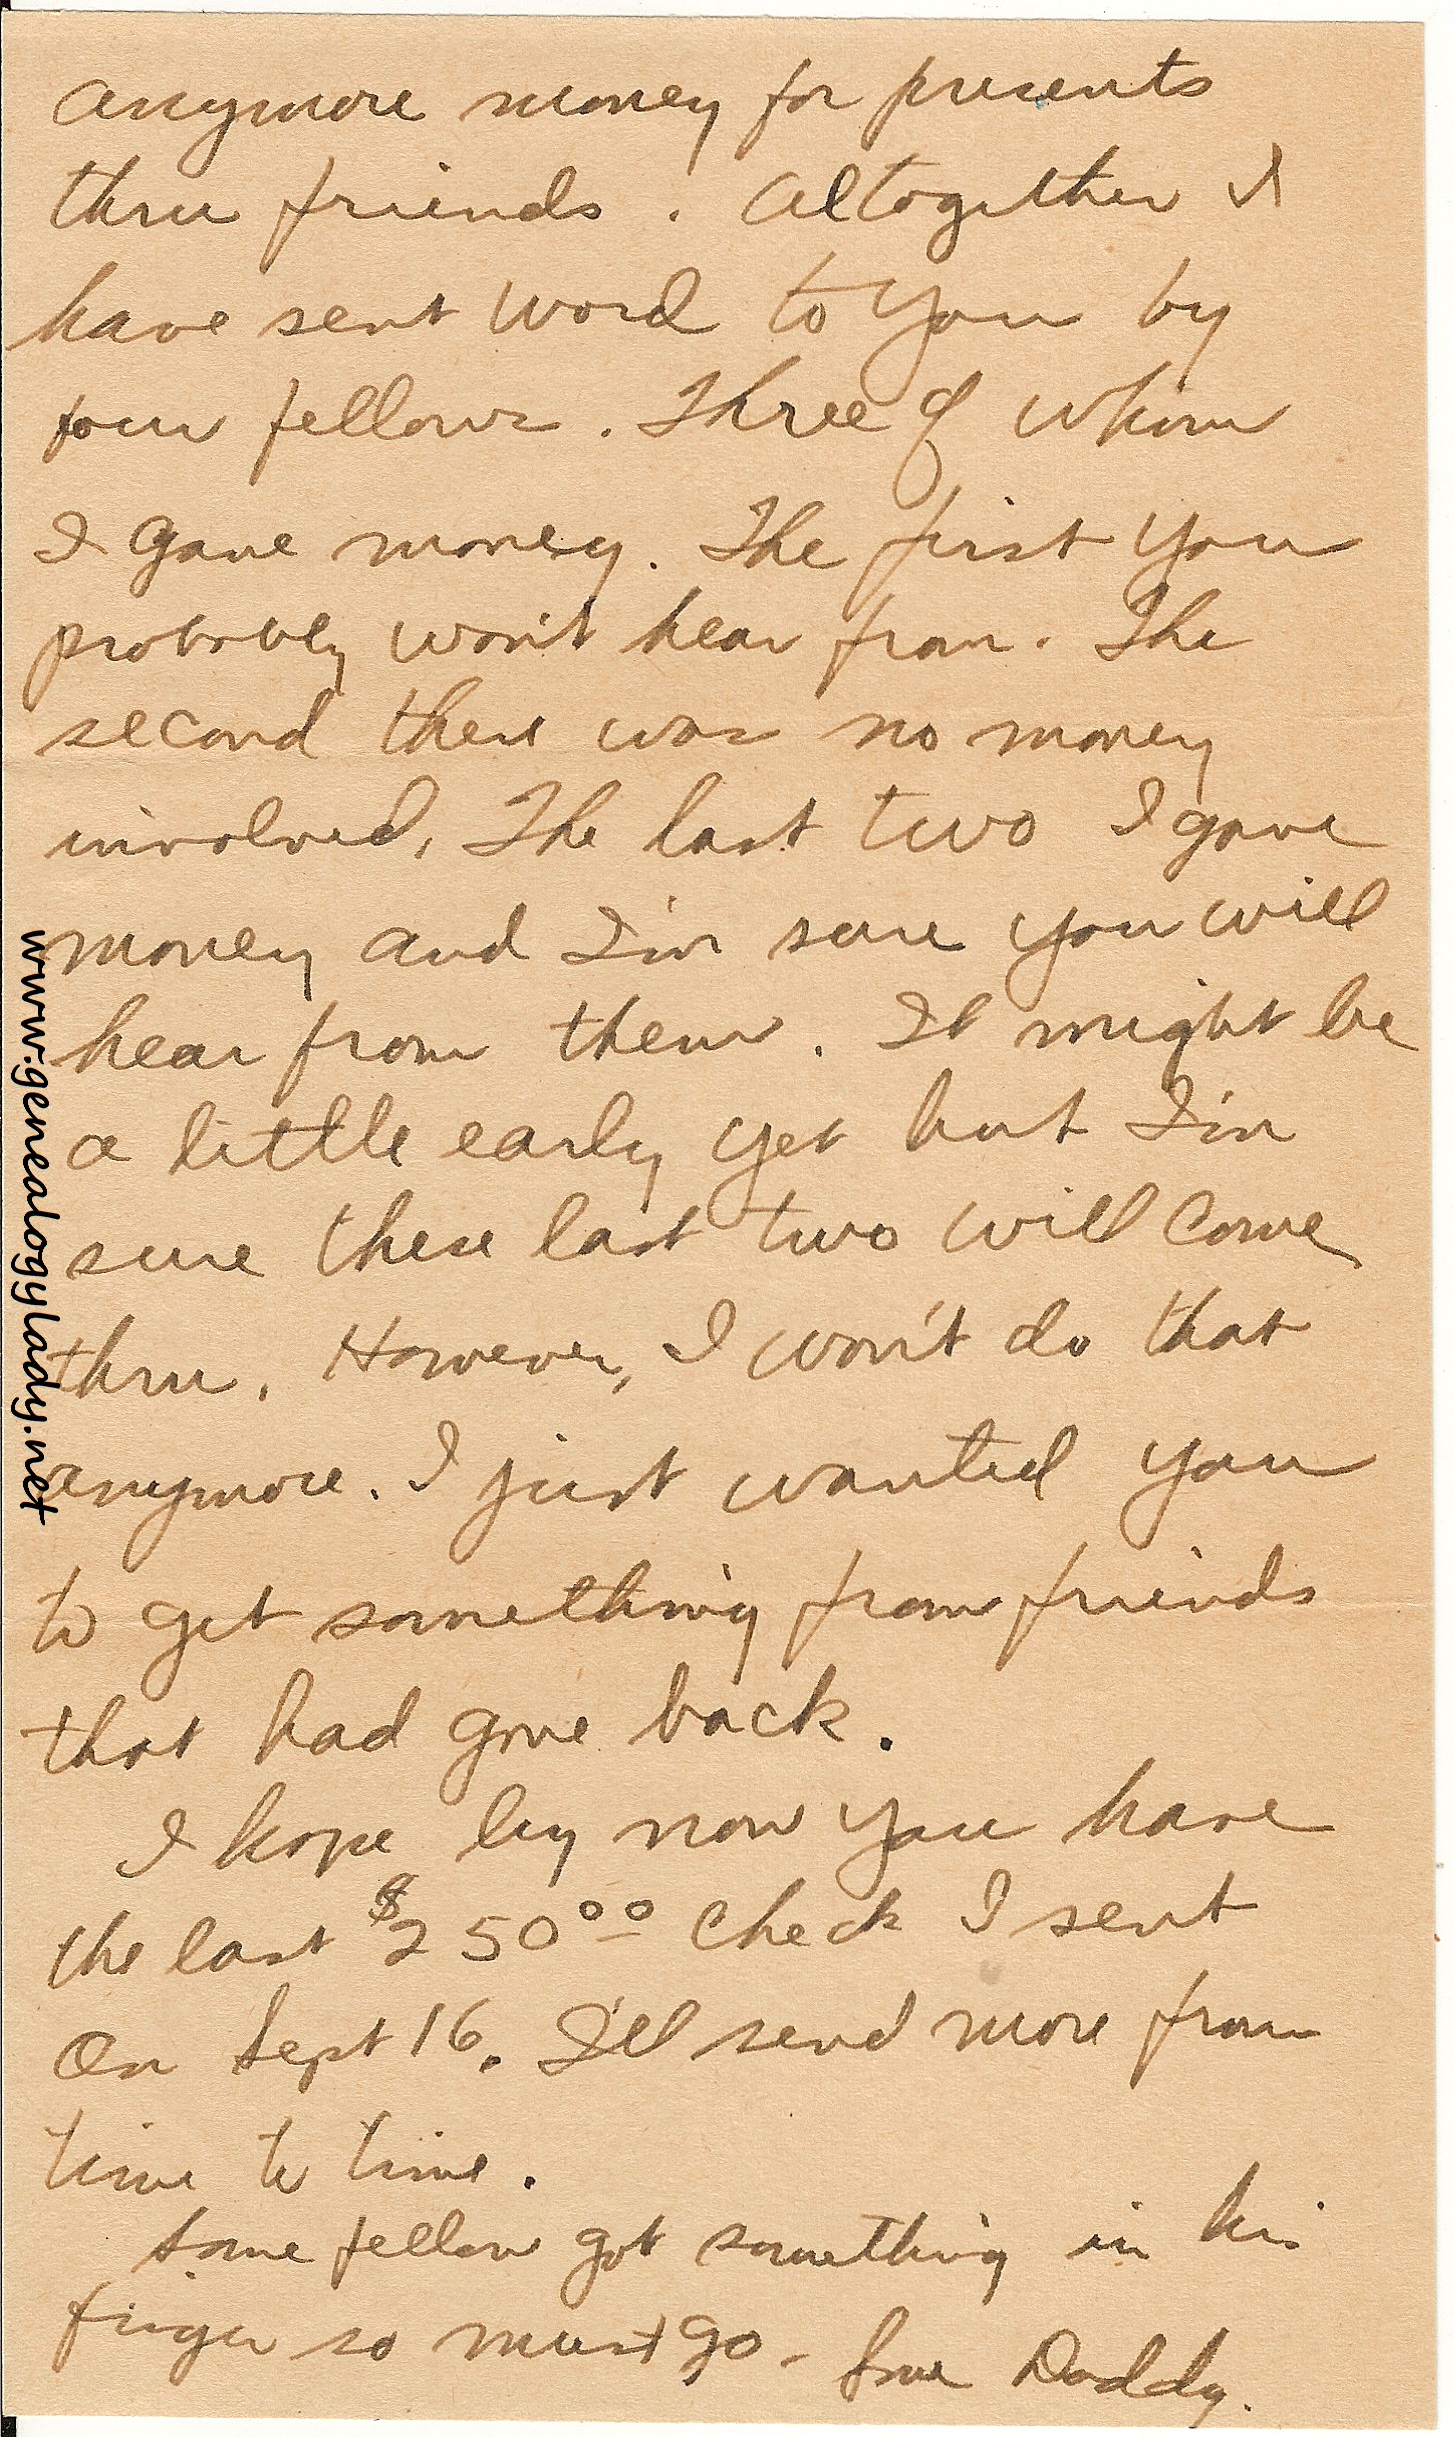 anymore money for presents
thru friends. Altogether I
have sent word to you by
four fellows. Three of whom
I gave money. The first you
probably won't hear from. The
second there was no money
involved. The last two I gave
money and I'm sure you will
hear from them. It might be
a little early yet but I'm
sure these last two will come
thru. However, I won't do that
anymore. I just wanted you
to get something from friends
that had gone back.
I hope by now you have
the last $250.00 check I sent
on Sept 16. I'll send more from
time to time.
Some fellow got something in his
finger so must go - Love Daddy.
www.genealogylady.net